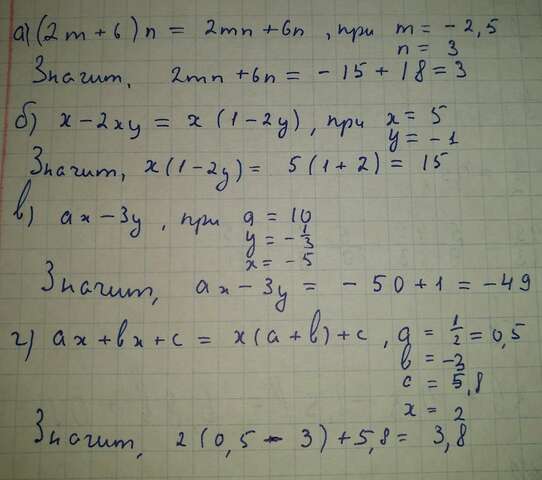 а) (2m + 6)n = 2mn + 6n , при m = - 2,5
n = 3
Значит, 2mn + 6n = - 15 + 18 = 3
б) x - 2xy = x (1 - 2y) , при x = 5
y = - 1
Значит, x (1 - 2y) = 5 (1 + 2) = 15
в) ax - 3y , при a = 10
y = - 1/3
x = - 5
Значит, ax - 3y = - 50 + 1 = - 49
г) ax + bx + c = x (a + b) + c , a = 1/2 = 0,5
b = -3
c = 5,8
x = 2
Значит, 2 (0,5 - 3) + 5,8 = 3,8